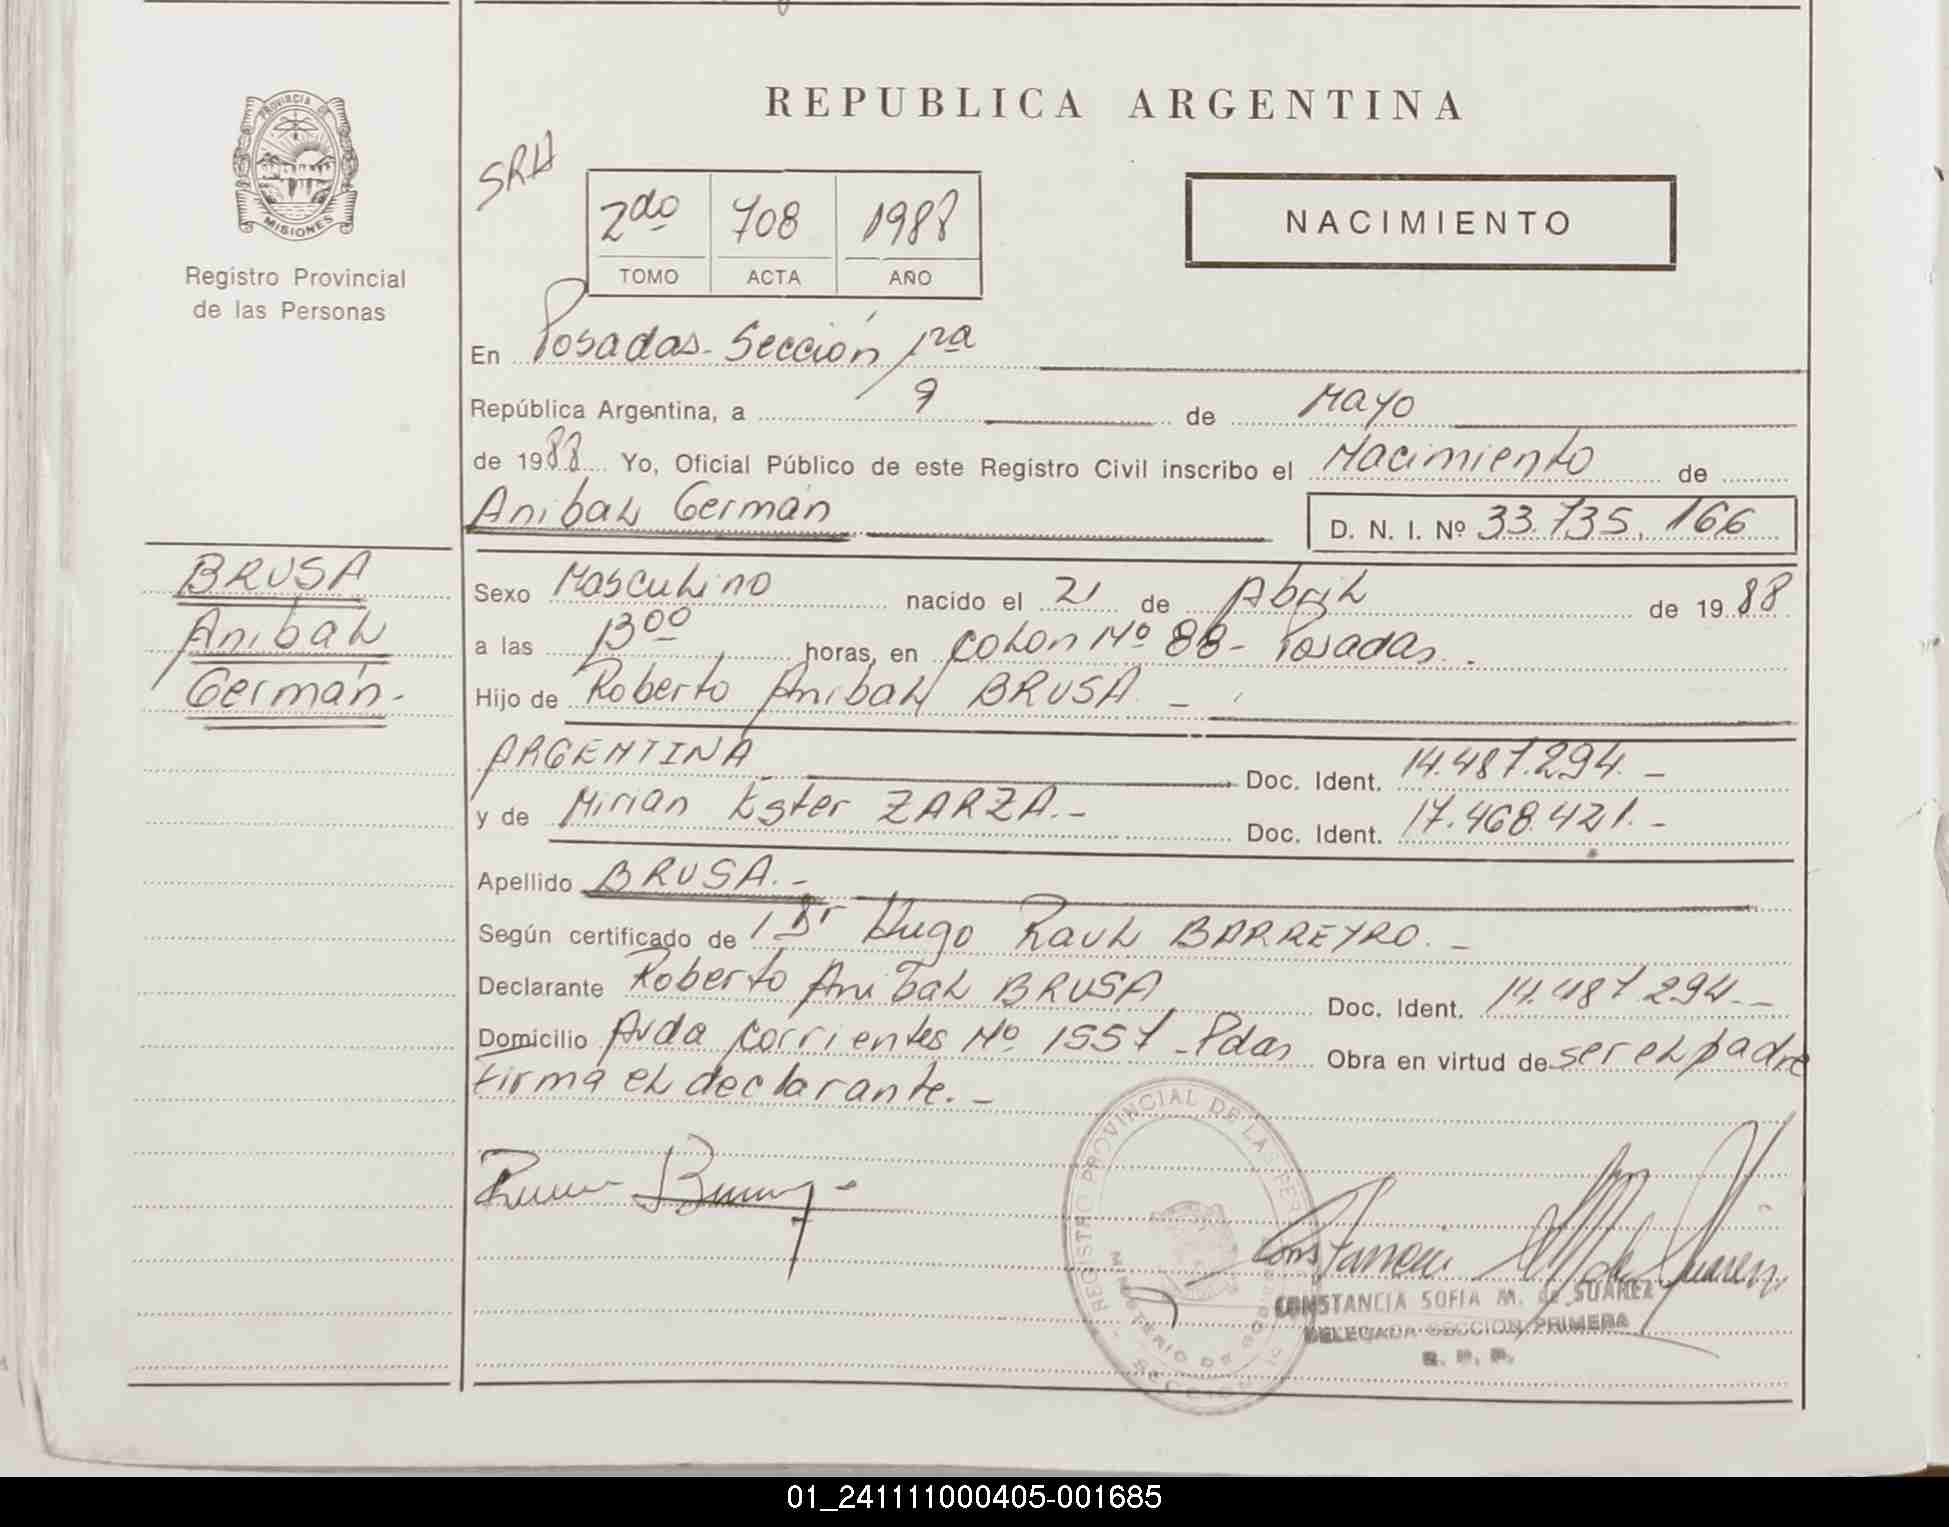 REPUBLICA ARGENTINA
PROVINCIA DE
MISIONES
Registro Provincial
de las Personas
SRA
2do 708 1988
TOMO ACTA AÑO
NACIMIENTO
En Posadas - Sección 1ra
República Argentina, a 9 de Mayo
de 1988 Yo, Oficial Público de este Registro Civil inscribo el Nacimiento de
Anibal Germán D. N. I. Nº 33.735.166
BRUSA
Anibal
Germán.-
Sexo Masculino nacido el 21 de Abril de 1988
a las 13 00 horas, en Colon Nº 88 - Posadas.
Hijo de Roberto Anibal BRUSA -
ARGENTINA Doc. Ident. 14.487.294.-
y de Mirian Ester ZARZA.- Doc. Ident. 17.468.421.-
Apellido BRUSA.-
Según certificado de Dr Hugo Raul BARREYRO.-
Declarante Roberto Anibal BRUSA Doc. Ident. 14.487.294.-
Domicilio Avda Corrientes Nº 1557 - Pdas Obra en virtud de ser el padre
Firma el declarante.-
REGISTRO PROVINCIAL DE LAS PER
MINISTERIO DE GOB
SECCION
CONSTANCIA SOFIA M. de SUAREZ
DELEGADA SECCION PRIMERA
R. P. P.
01_241111000405-001685